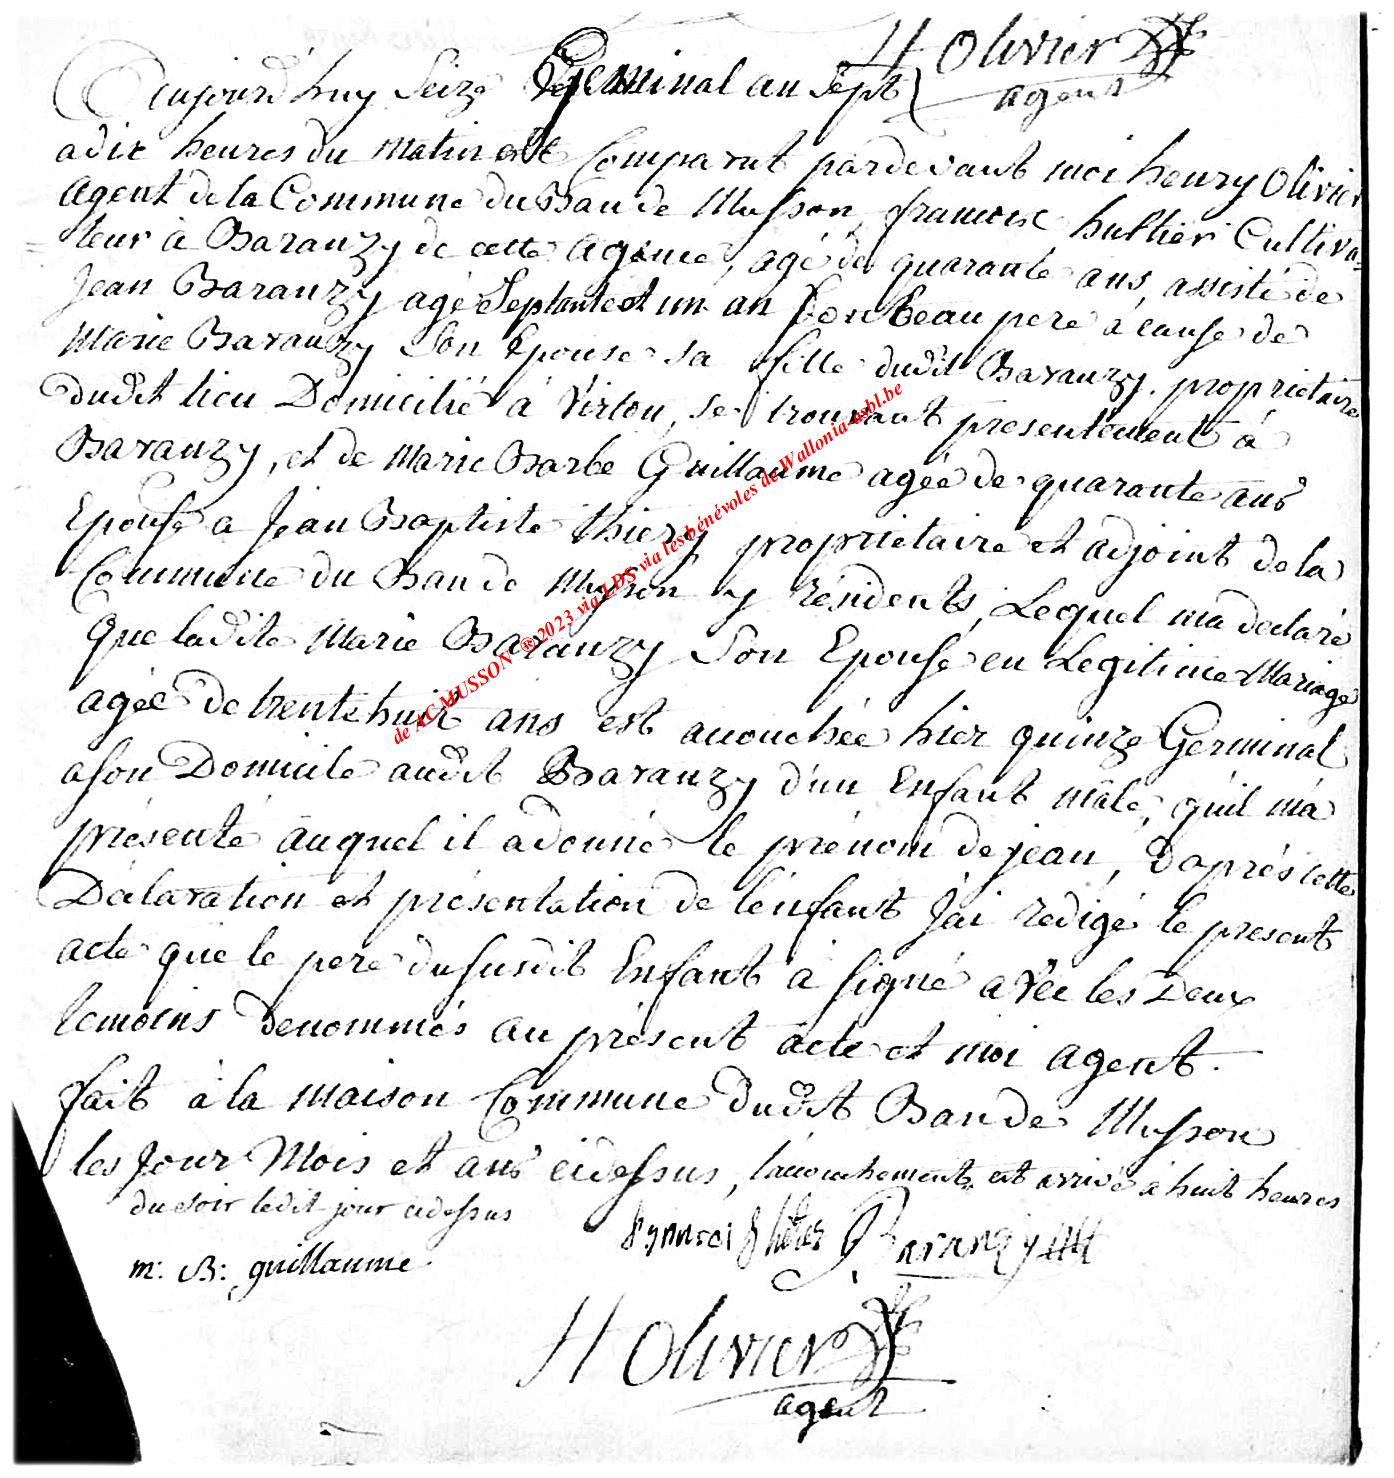 H Olivier
agent
Aujourd'huy Seize Germinal an Sept
a dix heures du matin est Comparut pardevant moi henry Olivier
Agent de la Commune du Ban de Musson, francois hultier Cultiva=
teur à Baranzy de cette Agence, agé de quarante ans, assisté de
Jean Baranzy agé Septante et un an son beau pere a cause de
Marie Baranzy Son Epouse sa fille dudit Baranzy. propriétaire
dudit lieu Domicilié à Virton, se trouvant presentement à
Baranzy, et de Marie Barbe Guillaume agée de quarante ans
Epouse a Jean Baptiste thiery propriétaire et adjoint de la
Commune du Ban de Musson y résidents, Lequel ma déclaré
Que ladite Marie Baranzy Son Epouse en Legitime Mariage
agée de trente huit ans est accouchée hier quinze Germinal
a son Domicile audit Baranzy d'un Enfant mâle, qu'il m'a
présenté auquel il a donné le prénom de jean, D'après cette
Déclaration et présentation de l'enfant j'ai rédigé le present
acte que le pere du susdit Enfant à signé avec les Deux
temoins denommés au présent acte et moi agent.
fait à la maison Commune Dudit Ban de Musson
les Jour Mois et ans cidessus, l'accouchement est arrivé à huit heures
du soir ledit jour cidessus
Baranzy
m: B: guillaume
H Olivier
agent
de AC MUSSON ®2023 via LDS via les bénévoles de Wallonia-asbl.be